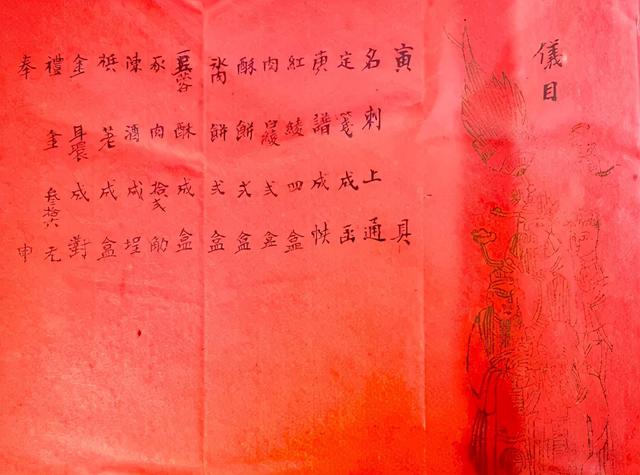 儀目
寅具
名刺上通
定箋成函
庚譜成帙
紅綾四盒
肉白綾弍盒
酥餅弍盒
餅弍盒
蓉酥成盒
豕肉拾弍觔
陳酒成埕
梹荖成盒
金耳環成對
禮金叁拾六元
奉申